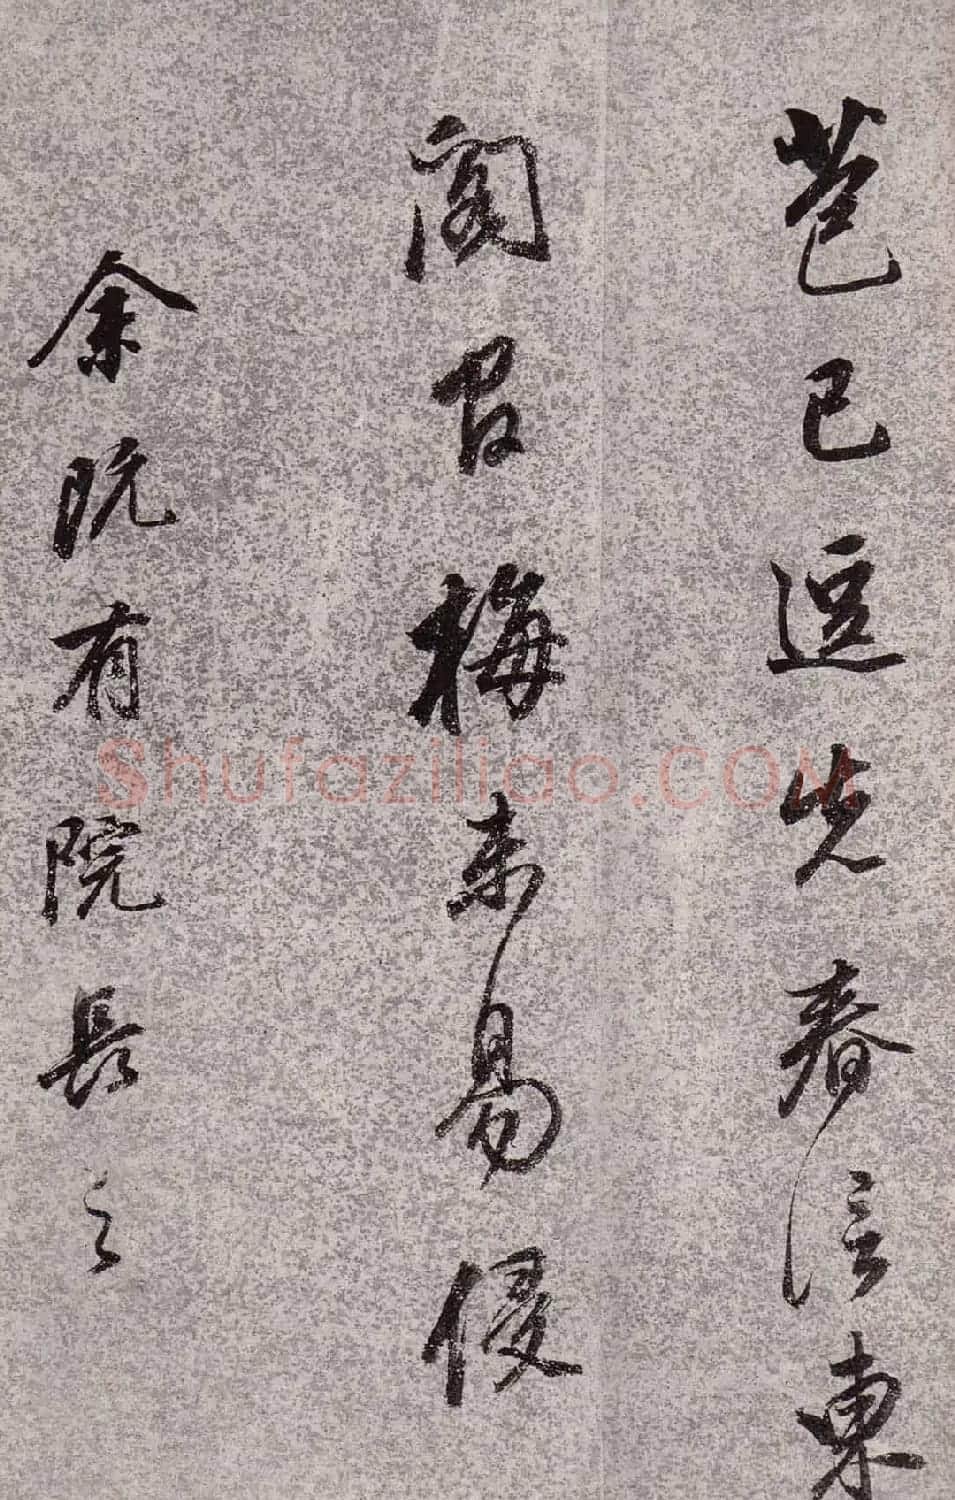 苞已逗先春信東
閣官梅未易侵
余既有院長之
Shufaziliao.COM